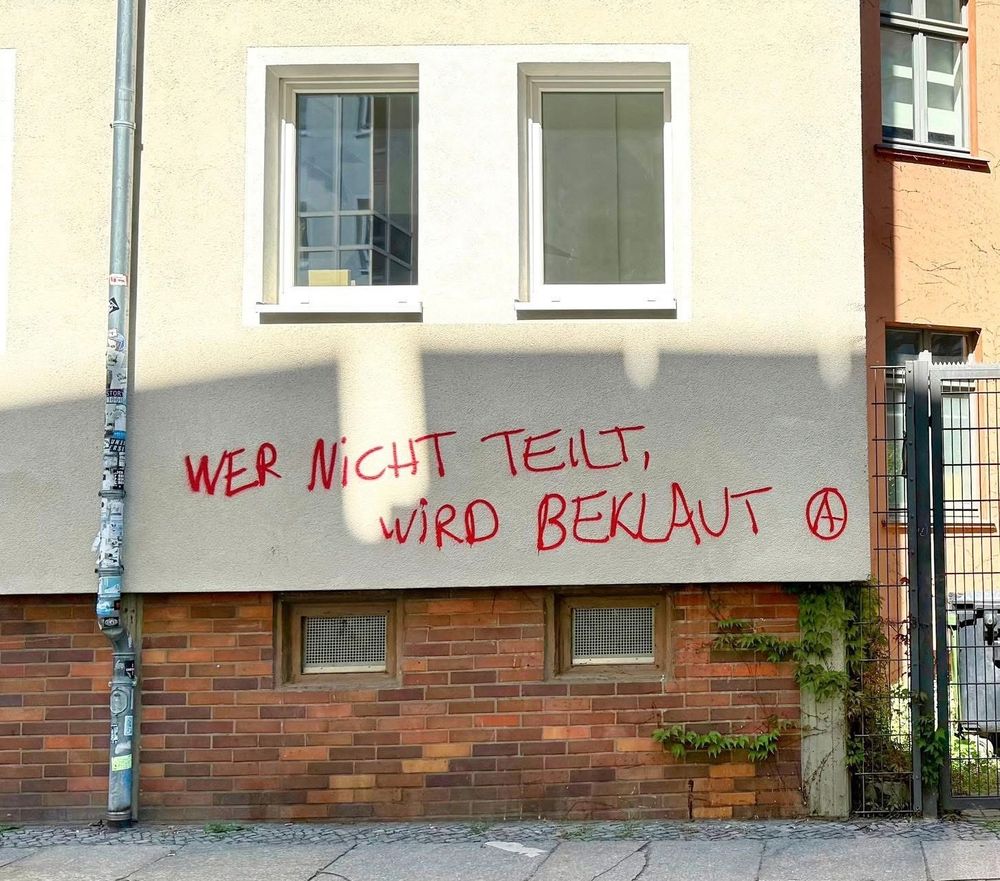 WER NiCHT TEILT,
WiRD BEKLAUT Ⓐ